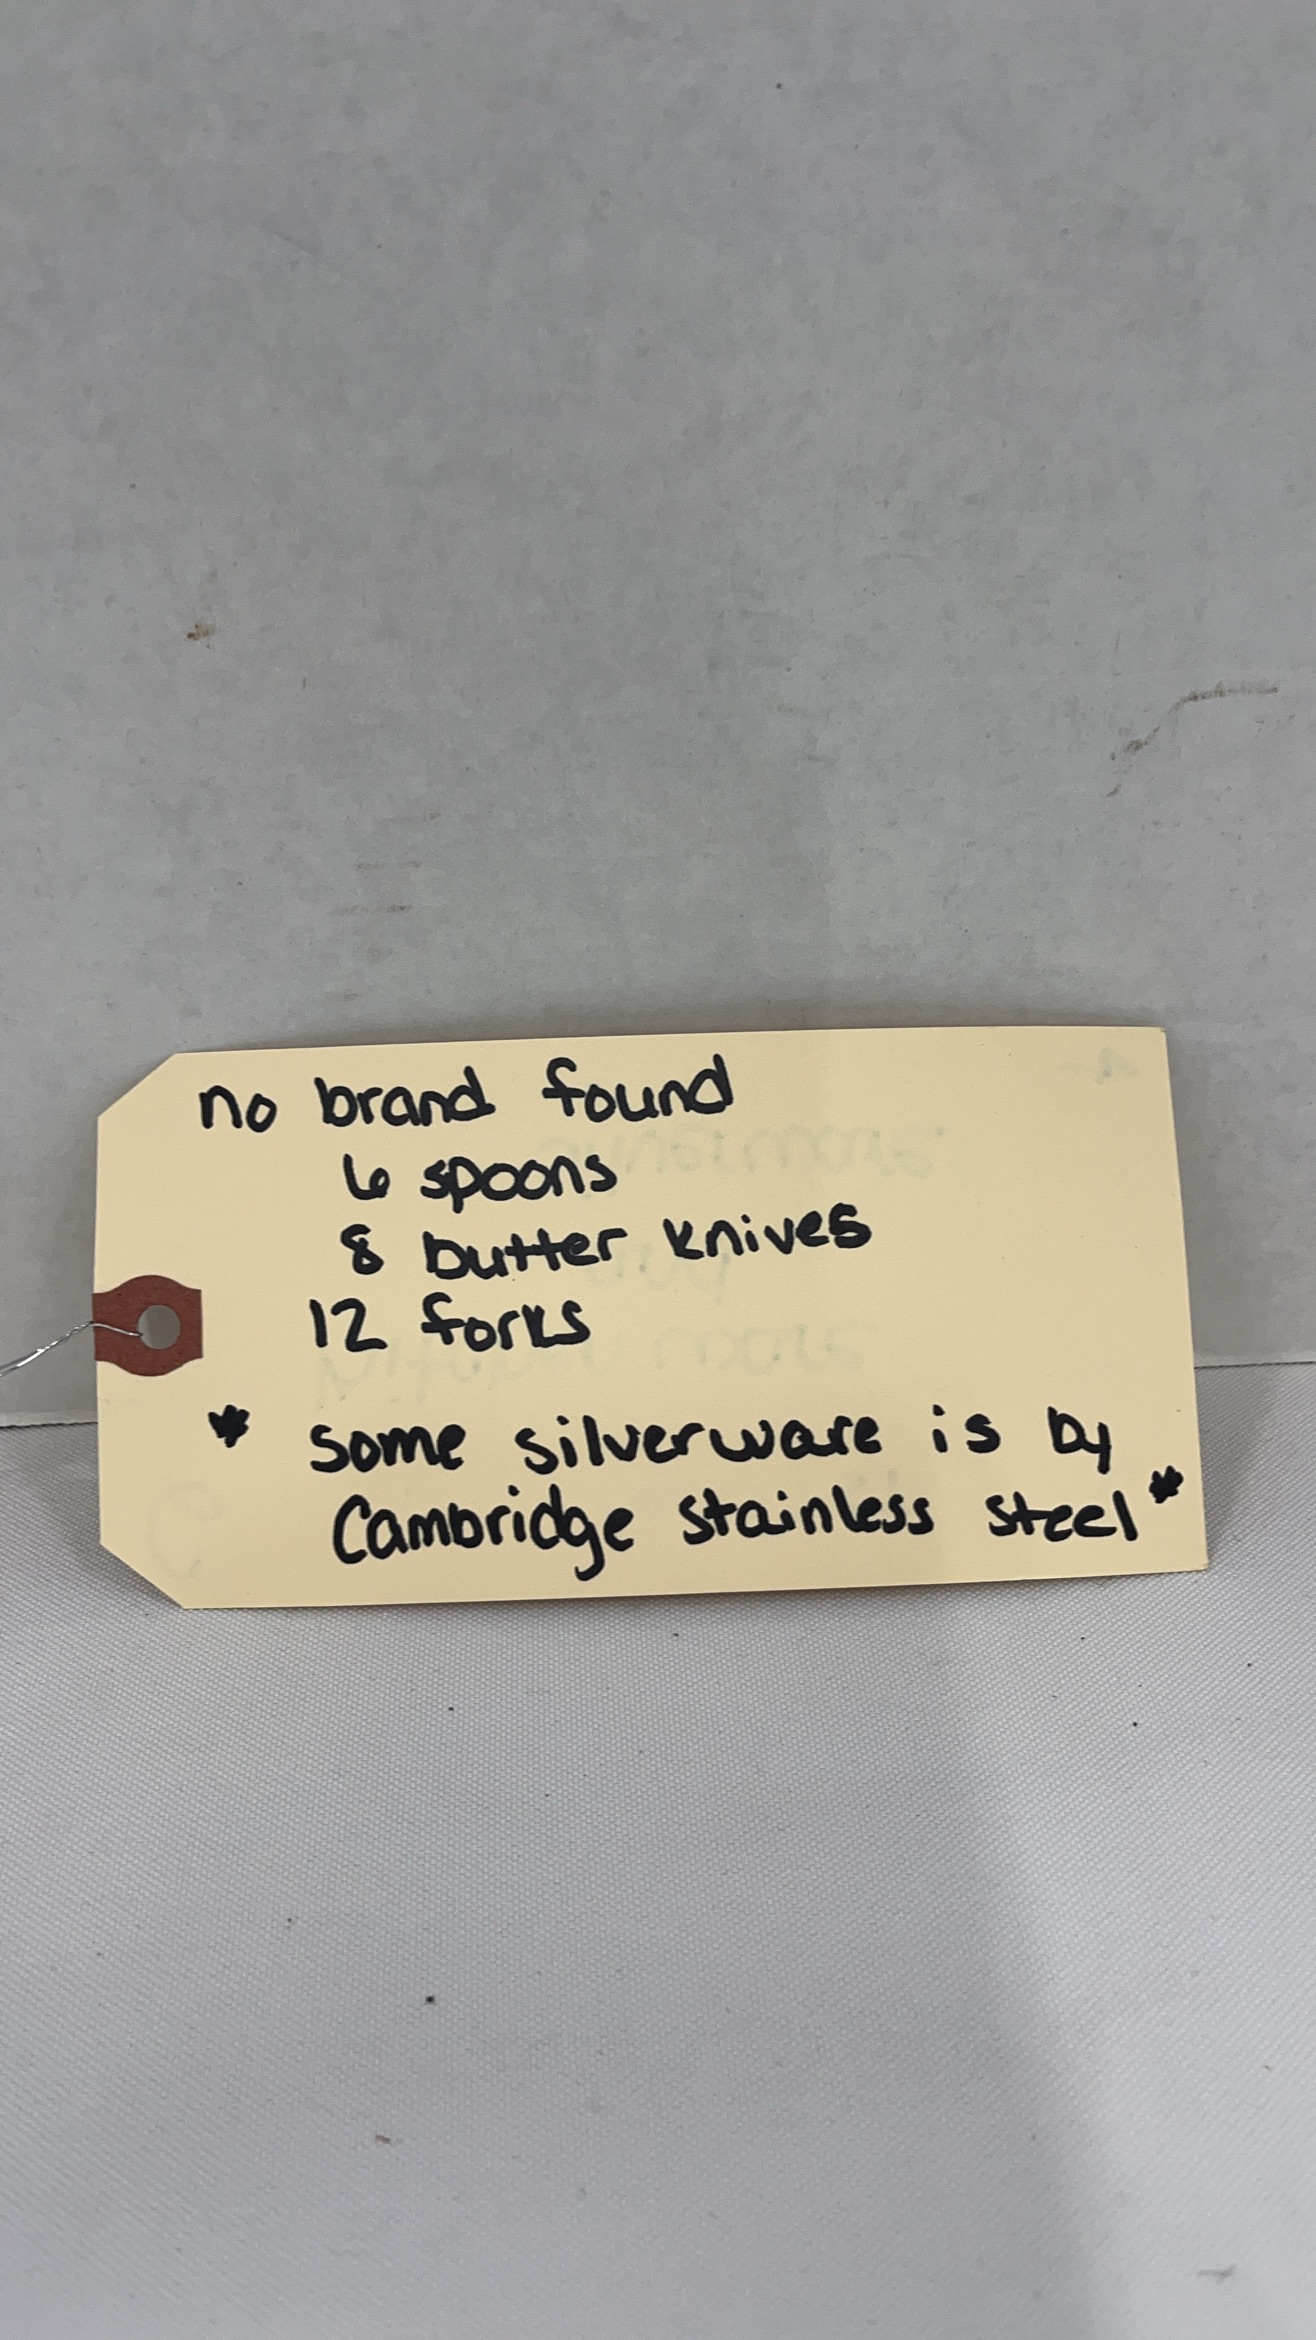 no brand found
6 spoons
8 butter knives
12 forks
* some silverware is by
Cambridge stainless steel *